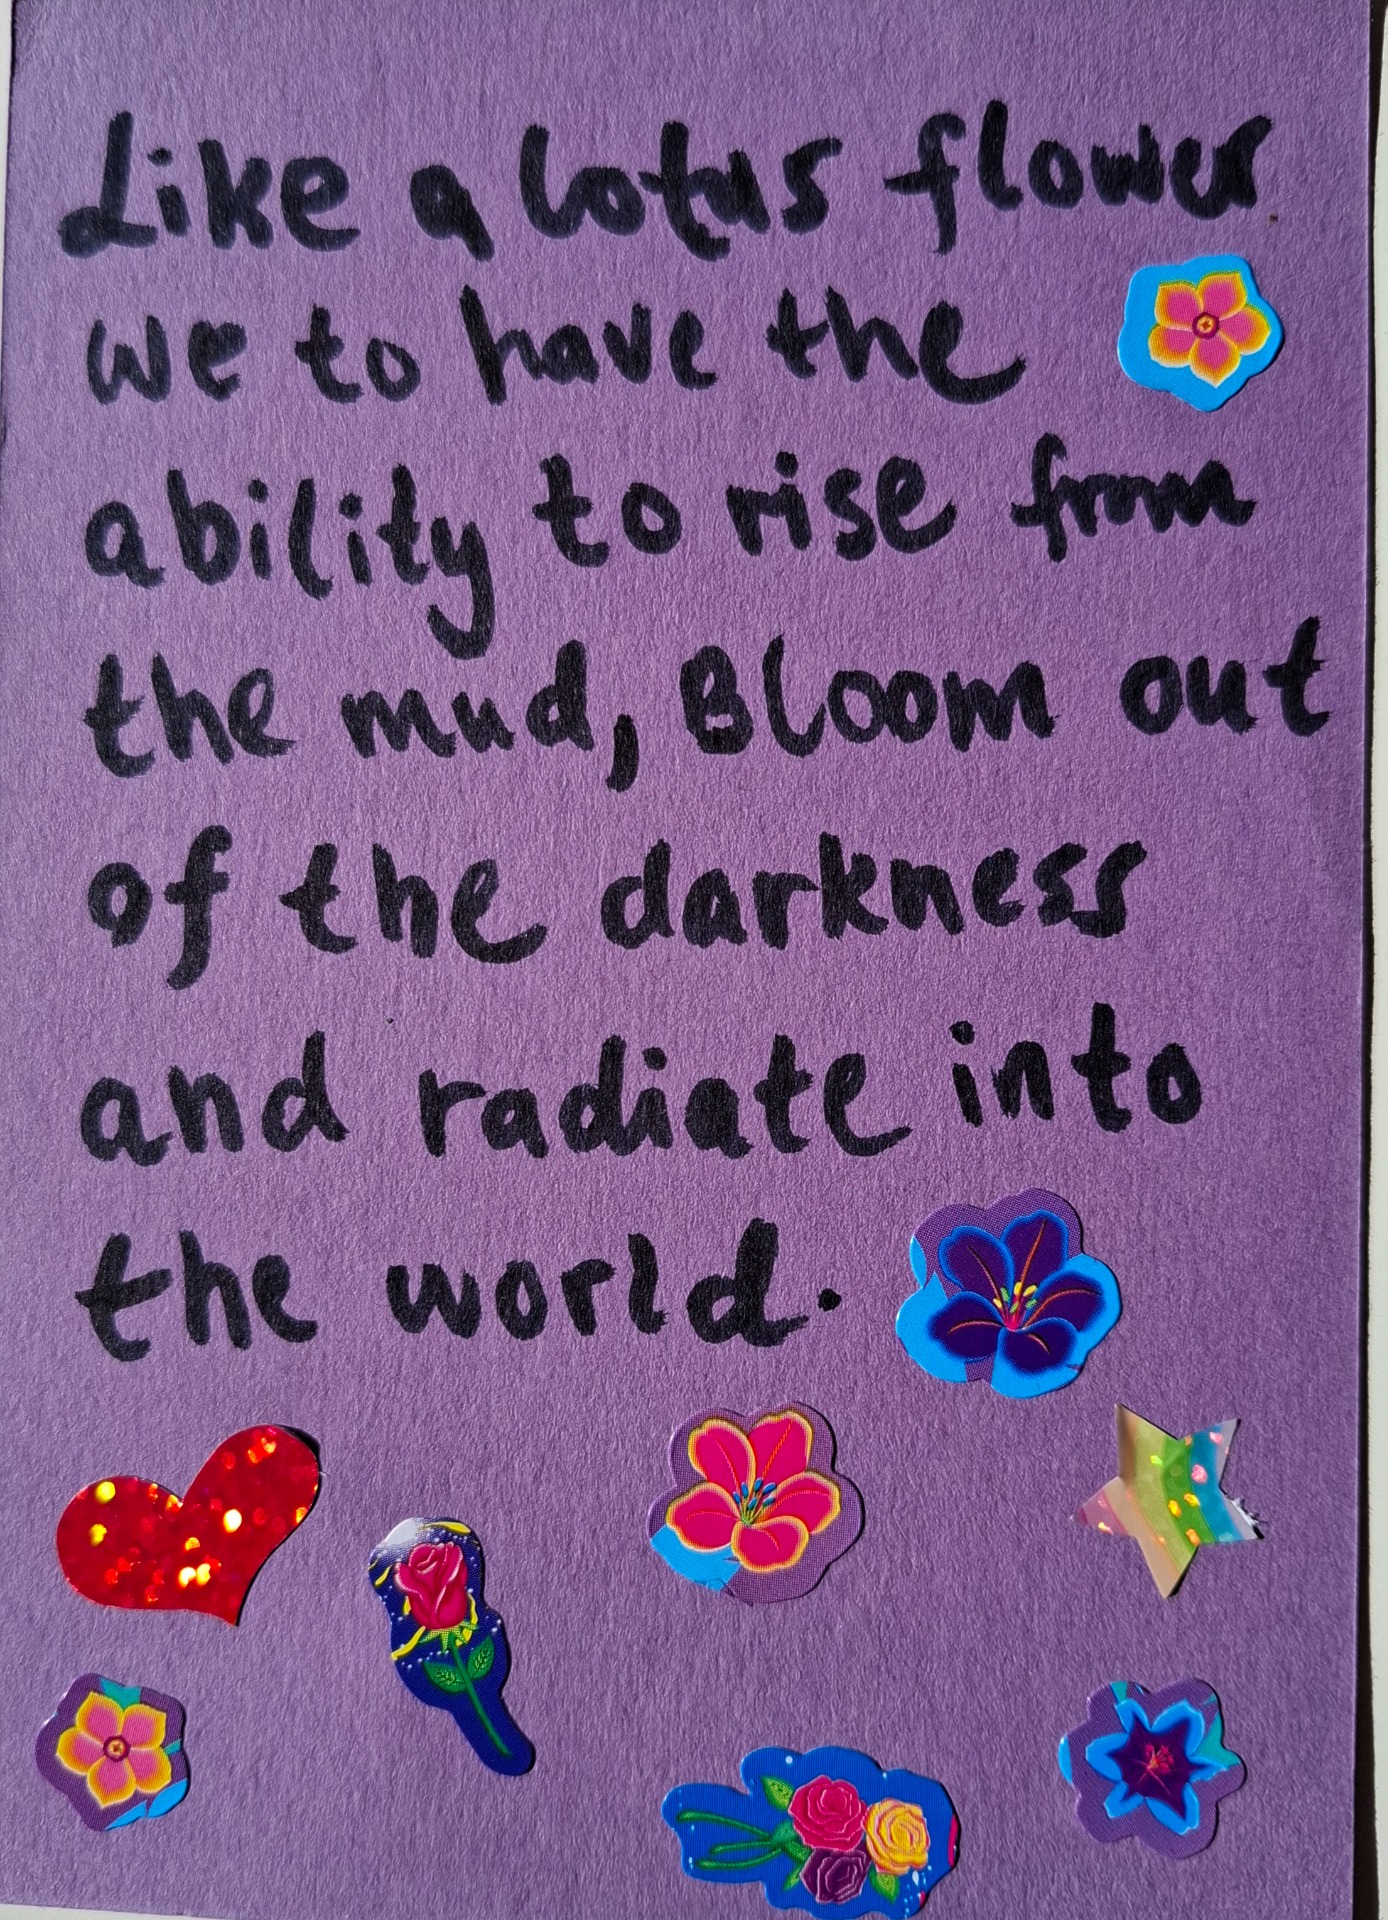 Like a lotus flower
we to have the
ability to rise from
the mud, Bloom out
of the darkness
and radiate into
the world.